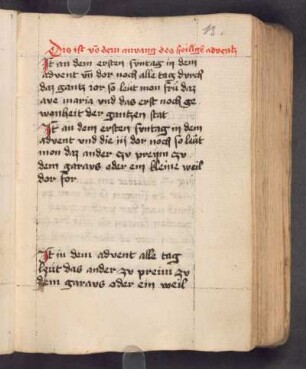 12.
Das ist vo dem anvang des heilige adventz
It an dem ersten suntag in dem
advent vn dor noch alle tag durch
daz gantz ior so leut mon fru daz
ave maria vnd das erst noch ge
wonheit der gantzen stat
It an dem ersten suntag in dem
advent vnd die iij dor noch so leut
mon daz ander czu preym czu
dem garavs oder ein kleine weil
dor for
It in dem advent alle tag
leut das ander zv preim zv
dem garavs oder ein weil